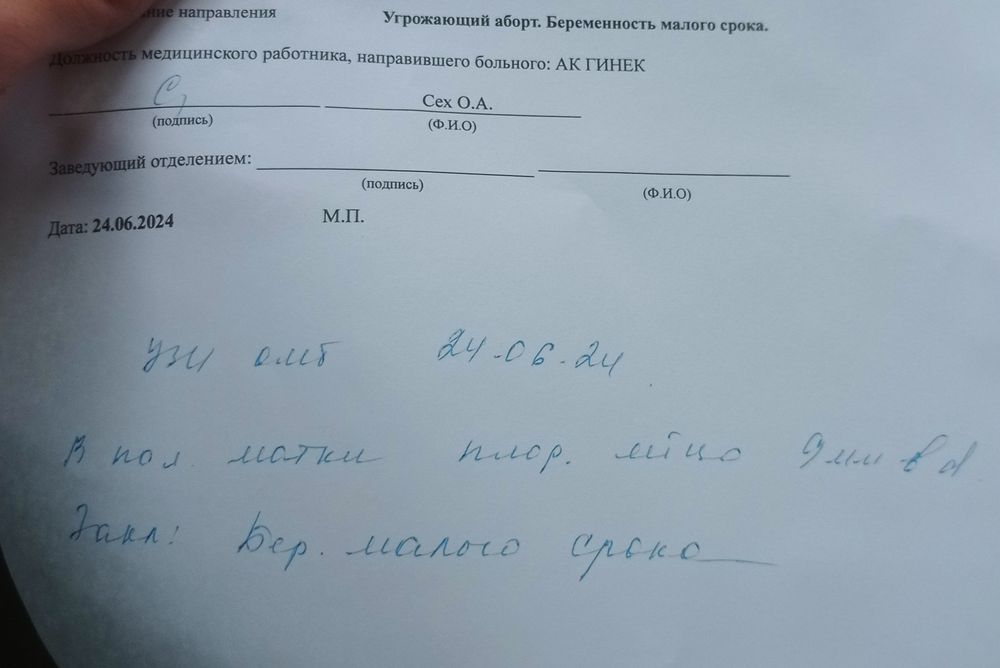 ние направления Угрожающий аборт. Беременность малого срока.
Должность медицинского работника, направившего больного: АК ГИНЕК
Сех О.А.
(подпись) (Ф.И.О)
Заведующий отделением:
(подпись) (Ф.И.О)
Дата: 24.06.2024 М.П.
УЗИ ОМТ 24.06.24
В пол. матки плод. яйцо 9мм в d
Закл: Бер. малого срока